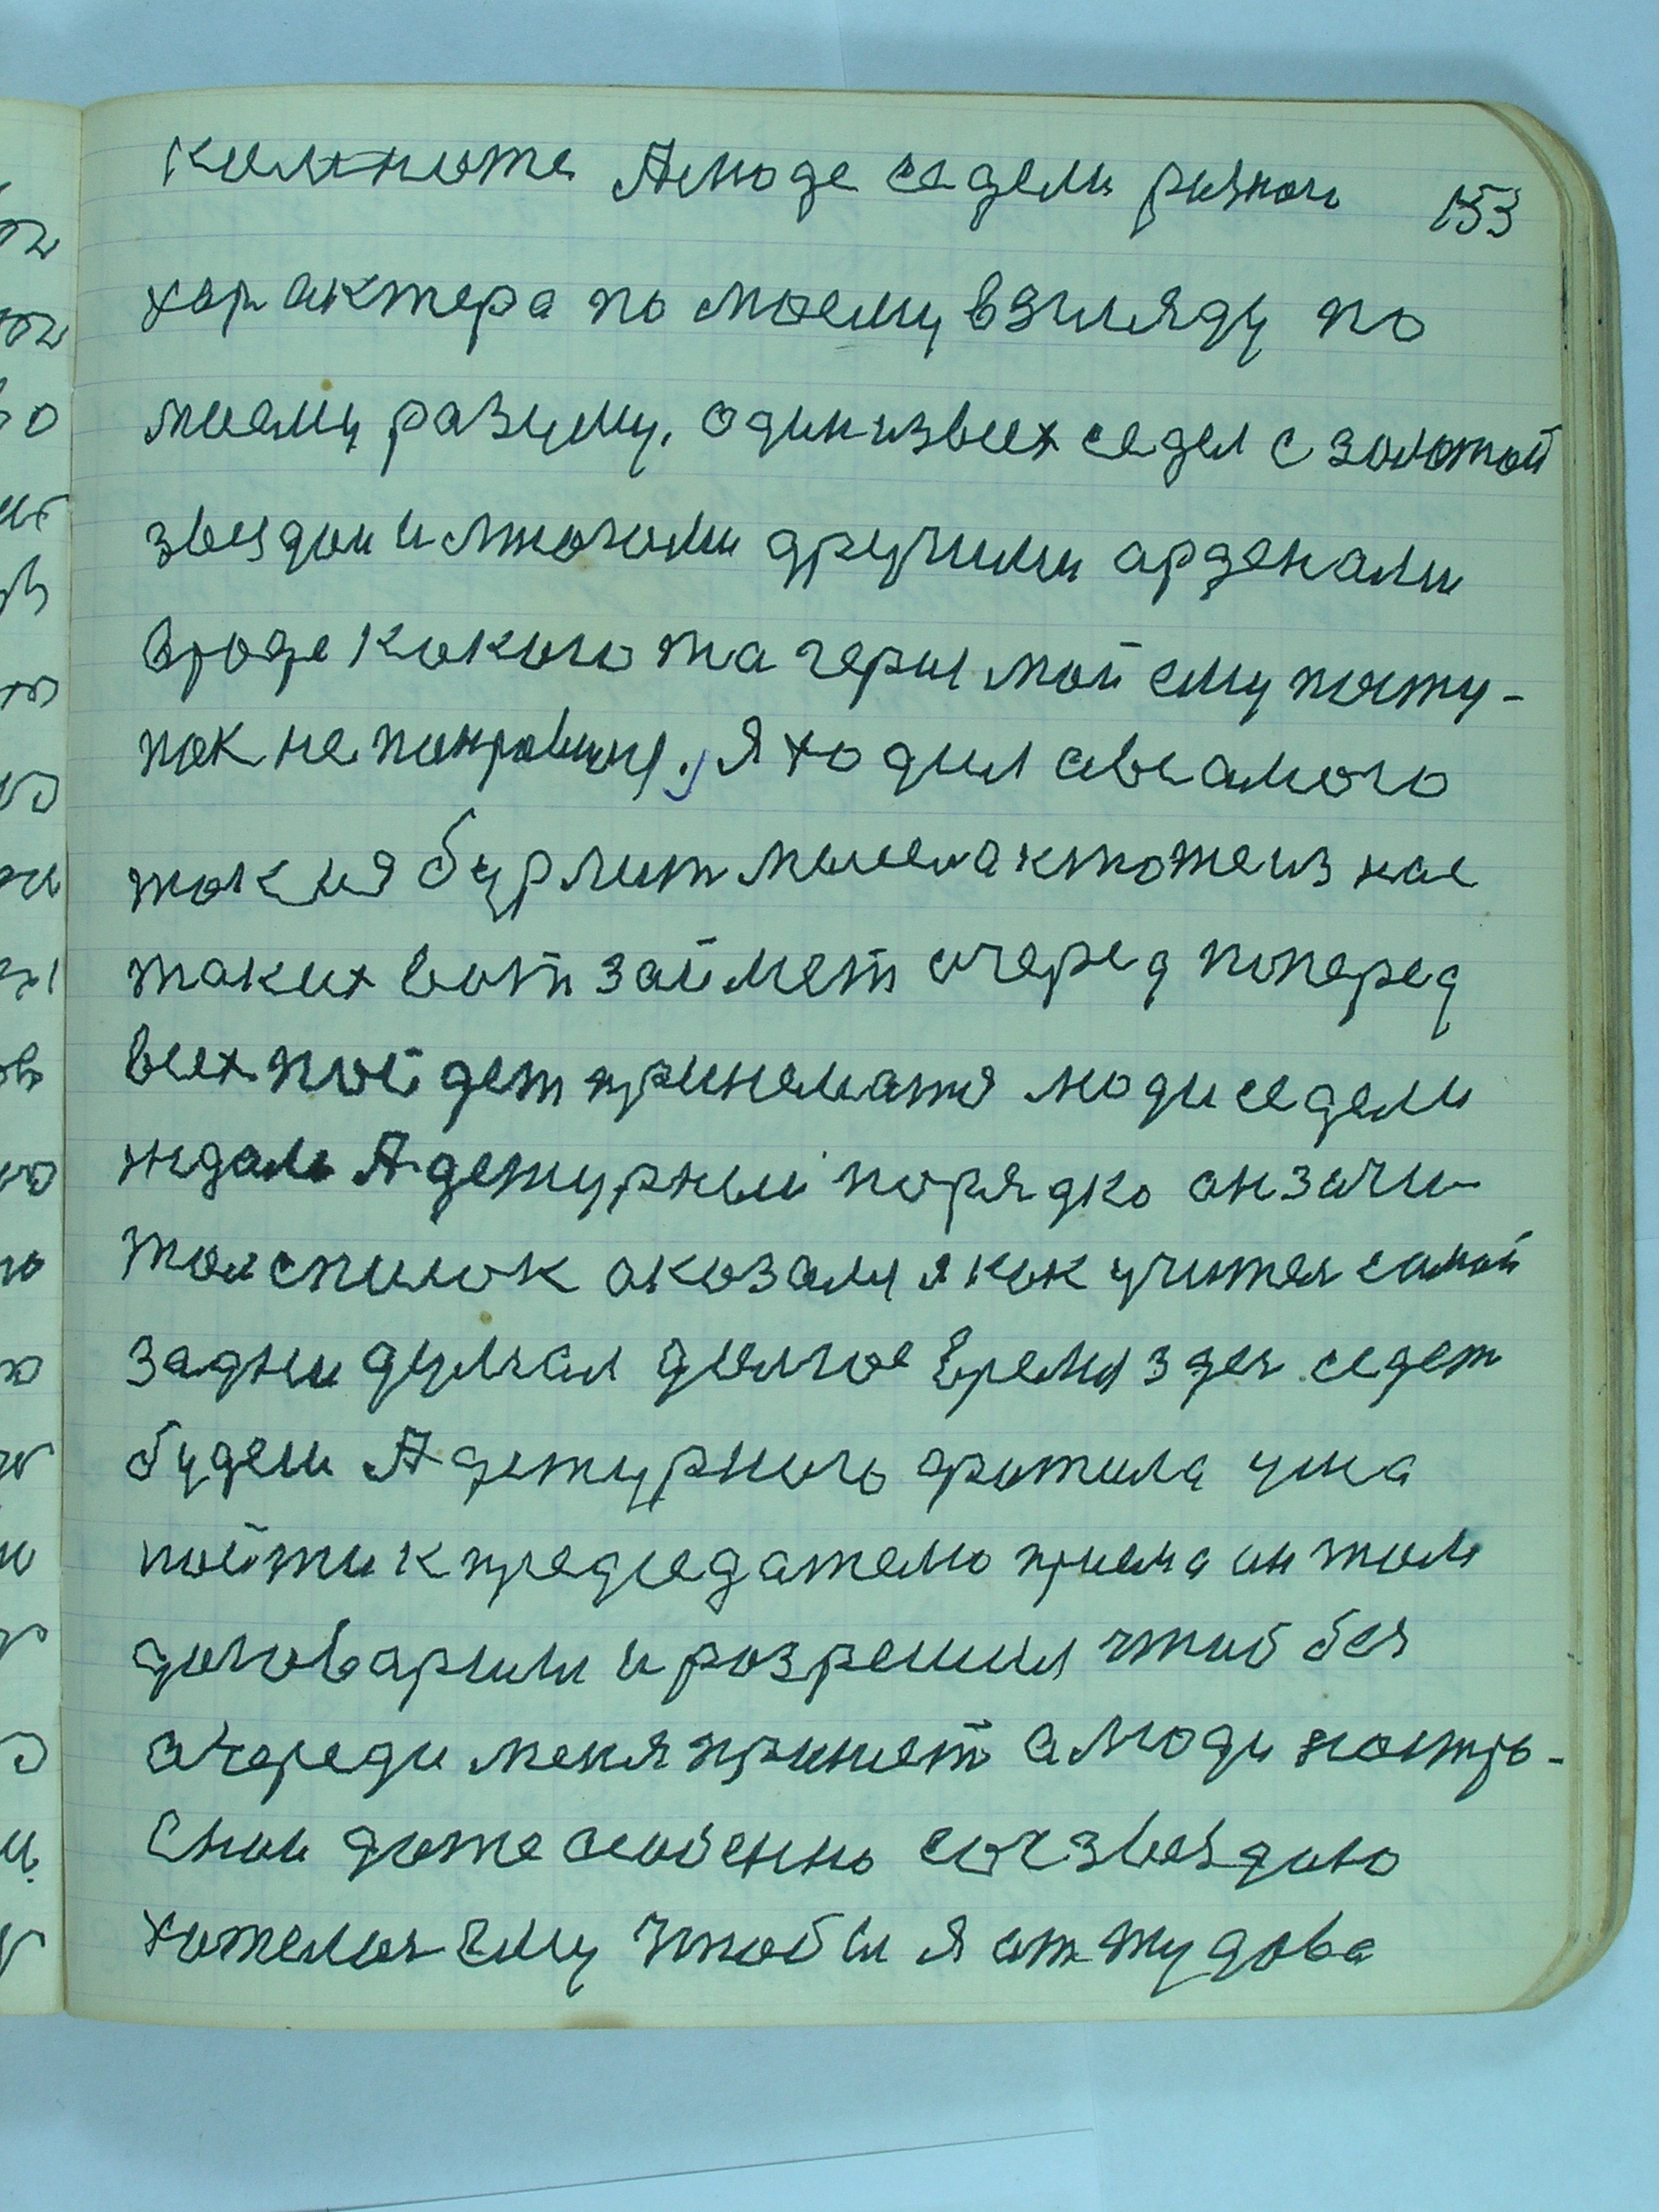 комноте А люде седели разного 153
характера по моему взгляду по
моему разуму. один извсех седел с золотой
звездои и многоми другими арденами
вроде какого та герия мой ему посту-
пок не понравился, я ходил авсамого
ток и я бурлит мысел а ктоже из нас
таких вот займет очеред поперед
всех пойдет принематся люди седели
ждали А дежурный порядко он зачи-
тал список аказался я как учител самой
задни думал долгое время здес седет
будеш А дежурного хватила ума
пойти к председателю приема он там
договарили и розрешил чтоб без
очереди меня принет а люди настро-
еныи даже особенно сочзвездою
хотелос ему чтобы я оттудова